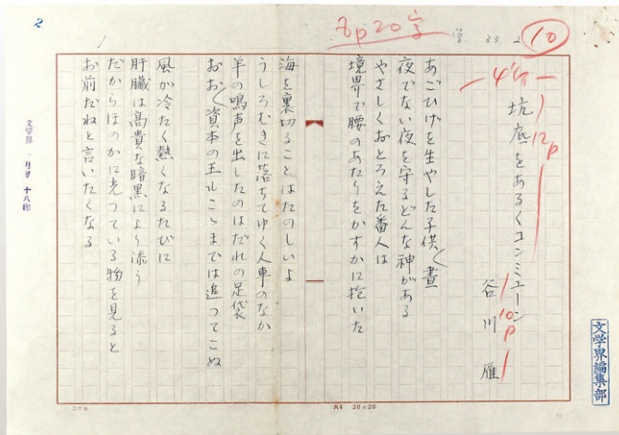 2
8p20字
10
4分
12p
坑底をあるくコンミューン
谷川雁
10p
あごひげを生やした子供く晝
夜でない夜を守るどんな神がある
やさしくおとろえた番人は
境界で腰のあたりをかすかに抱いた
海を裏切ることはたのしいよ
うしろむきに落ちてゆく人車のなか
羊の鳴声を出したのはだれの足袋
おお〱資本の王もここまでは追つてこぬ
風が冷たく熱くなるたびに
肝臓は高貴な暗黒により添う
だからほのかに光つている物を見ると
お前だねと言いたくなる
文学界 月号 十八回
文学界編集部
コクヨ
20×20